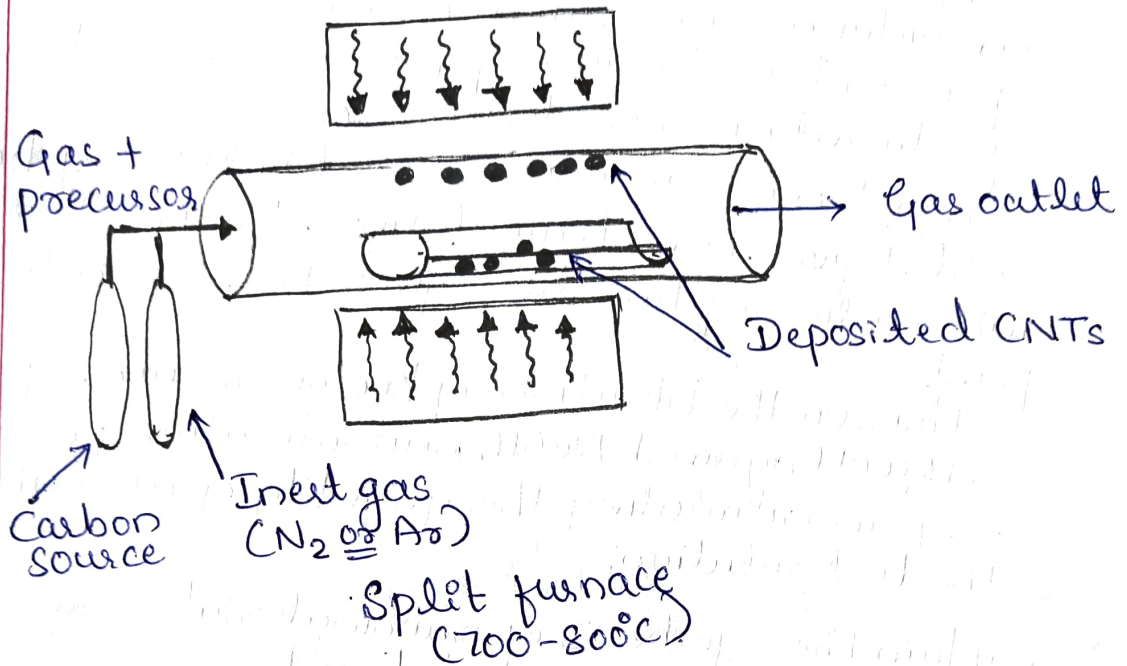 Gas +
precursor
Gas outlet
Deposited CNTs
Carbon
source
Inert gas
(N2 or Ar)
Split furnace
(700-800°C)